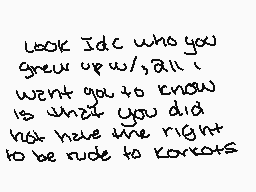 Look Idc who you
grew up w/, all i
want you to know
is that you did
not have the right
to be rude to Korkots